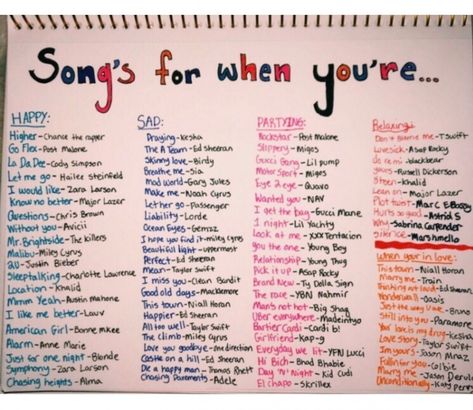 Song's for when you're...
HAPPY:
Higher-Chance the rapper
Go Flex-Post Malone
La Da Dee-Cody Simpson
Let me go-Hailee Steinfeld
I would like-Zara Larson
Know no better-Major Lazer
Questions-Chris Brown
Without you-Avicii
Mr. Brightside-The killers
Malibu-Miles Cyrus
2U-Justin Bieber
Sleeptalking-Charlotte Lawrence
Location-Khalid
Mmm Yeah-Austin Mahone
I like me better-Lauv
American Girl-Bonnie McKee
Alarm-Anne Marie
Just for one night-Blonde
Symphony-Zara Larson
Chasing heights-Alma
SAD:
Praying-Kesha
The A Team-Ed Sheeran
Skinny love-Birdy
Breathe me-Sia
Mad World-Gary Jules
Make me-Noah Cyrus
Let her go-Passenger
Liability-Lorde
Ocean Eyes-
I hope you find it-miley Cyrus
Beautiful light-uppermost
Perfect-Ed Sheeran
Mean-Taylor Swift
I miss you-Clean Bandit
Good old days-Macklemore
This town-Niall Horan
Happier-Ed Sheeran
All too well-Taylor Swift
The climb-miley Cyrus
Love you goodbye-One direction
Castle on a hill-Ed Sheeran
Die a happy man-Thomas Rhett
Chasing Pavements-Adele
PARTYING:
Rockstar-Post Malone
Slippery-Migos
Gucci Gang-Lil pump
Motor Sport-Migos
Eye 2 eye-Quavo
Wanted you-NAV
I get the bag-Gucci Mane
1 night-Lil Yachty
Look at me-XXXTentacion
you the one-Young Boy
Relationship-Young Thug
Pick it up-Asap Rocky
Brand New-Ty Dolla $ign
The race-YBN Nahmir
Man's not hot-Big Shaq
Uber everywhere-Madeintyo
Bartier Cardi-Cardi b
Girlfriend-Kap-g
Everyday we lit-YFN Lucci
Hi Bich-Bhad Bhabie
Day 'N' Night-Kid Cudi
El chapo-Skrillex
Relaxing:
Don't Blame me-T.Swift
Lovesick-Asap Rocky
do re mi-blackbear
yours-Russell Dickerson
8teen-Khalid
Lean on-Major Lazer
Plot twist-Marc E Bassy
Hurts so good-Astrid S
Why-Sabrina Carpenter
Silence-Marshmello
When your in love:
This town-Niall Horan
Marry me-Train
Thinking out loud-Ed Sheeran
Wonderwall-Oasis
Just the way U are-Bruno
Still into you-Paramore
Your love is my drug-Kesha
Love story-Taylor Swift
Im yours-Jason Mraz
Fallin for you-Colbie
Marry me-Jason Derulo
Unconditionally-Katy perry